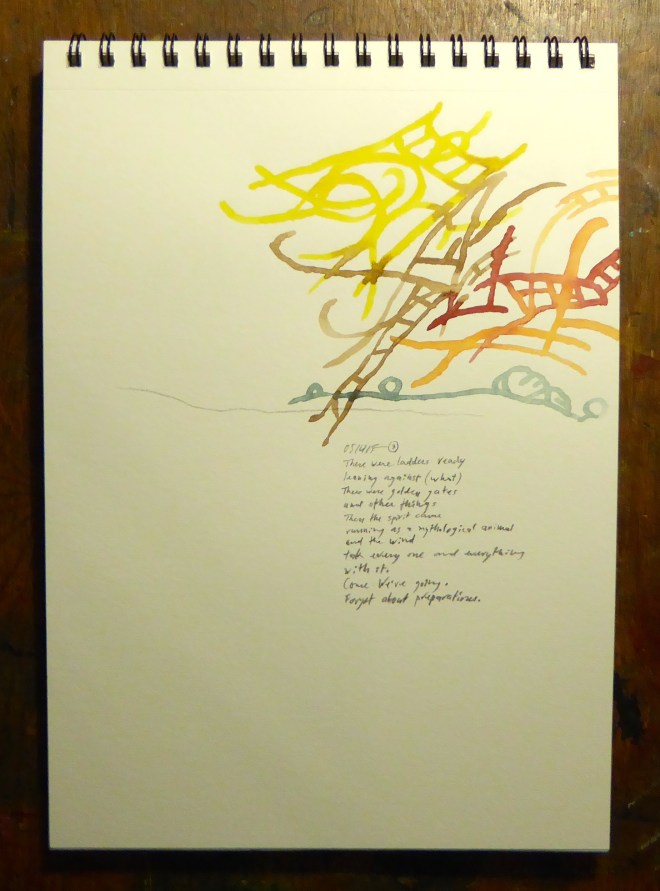 There were ladders ready
leaning against (what)
There were golden gates
and other things
Then the spirit came
running as a mythological animal
and the wind
took every one and everything
with it.
Come We're going.
Forget about preparations.